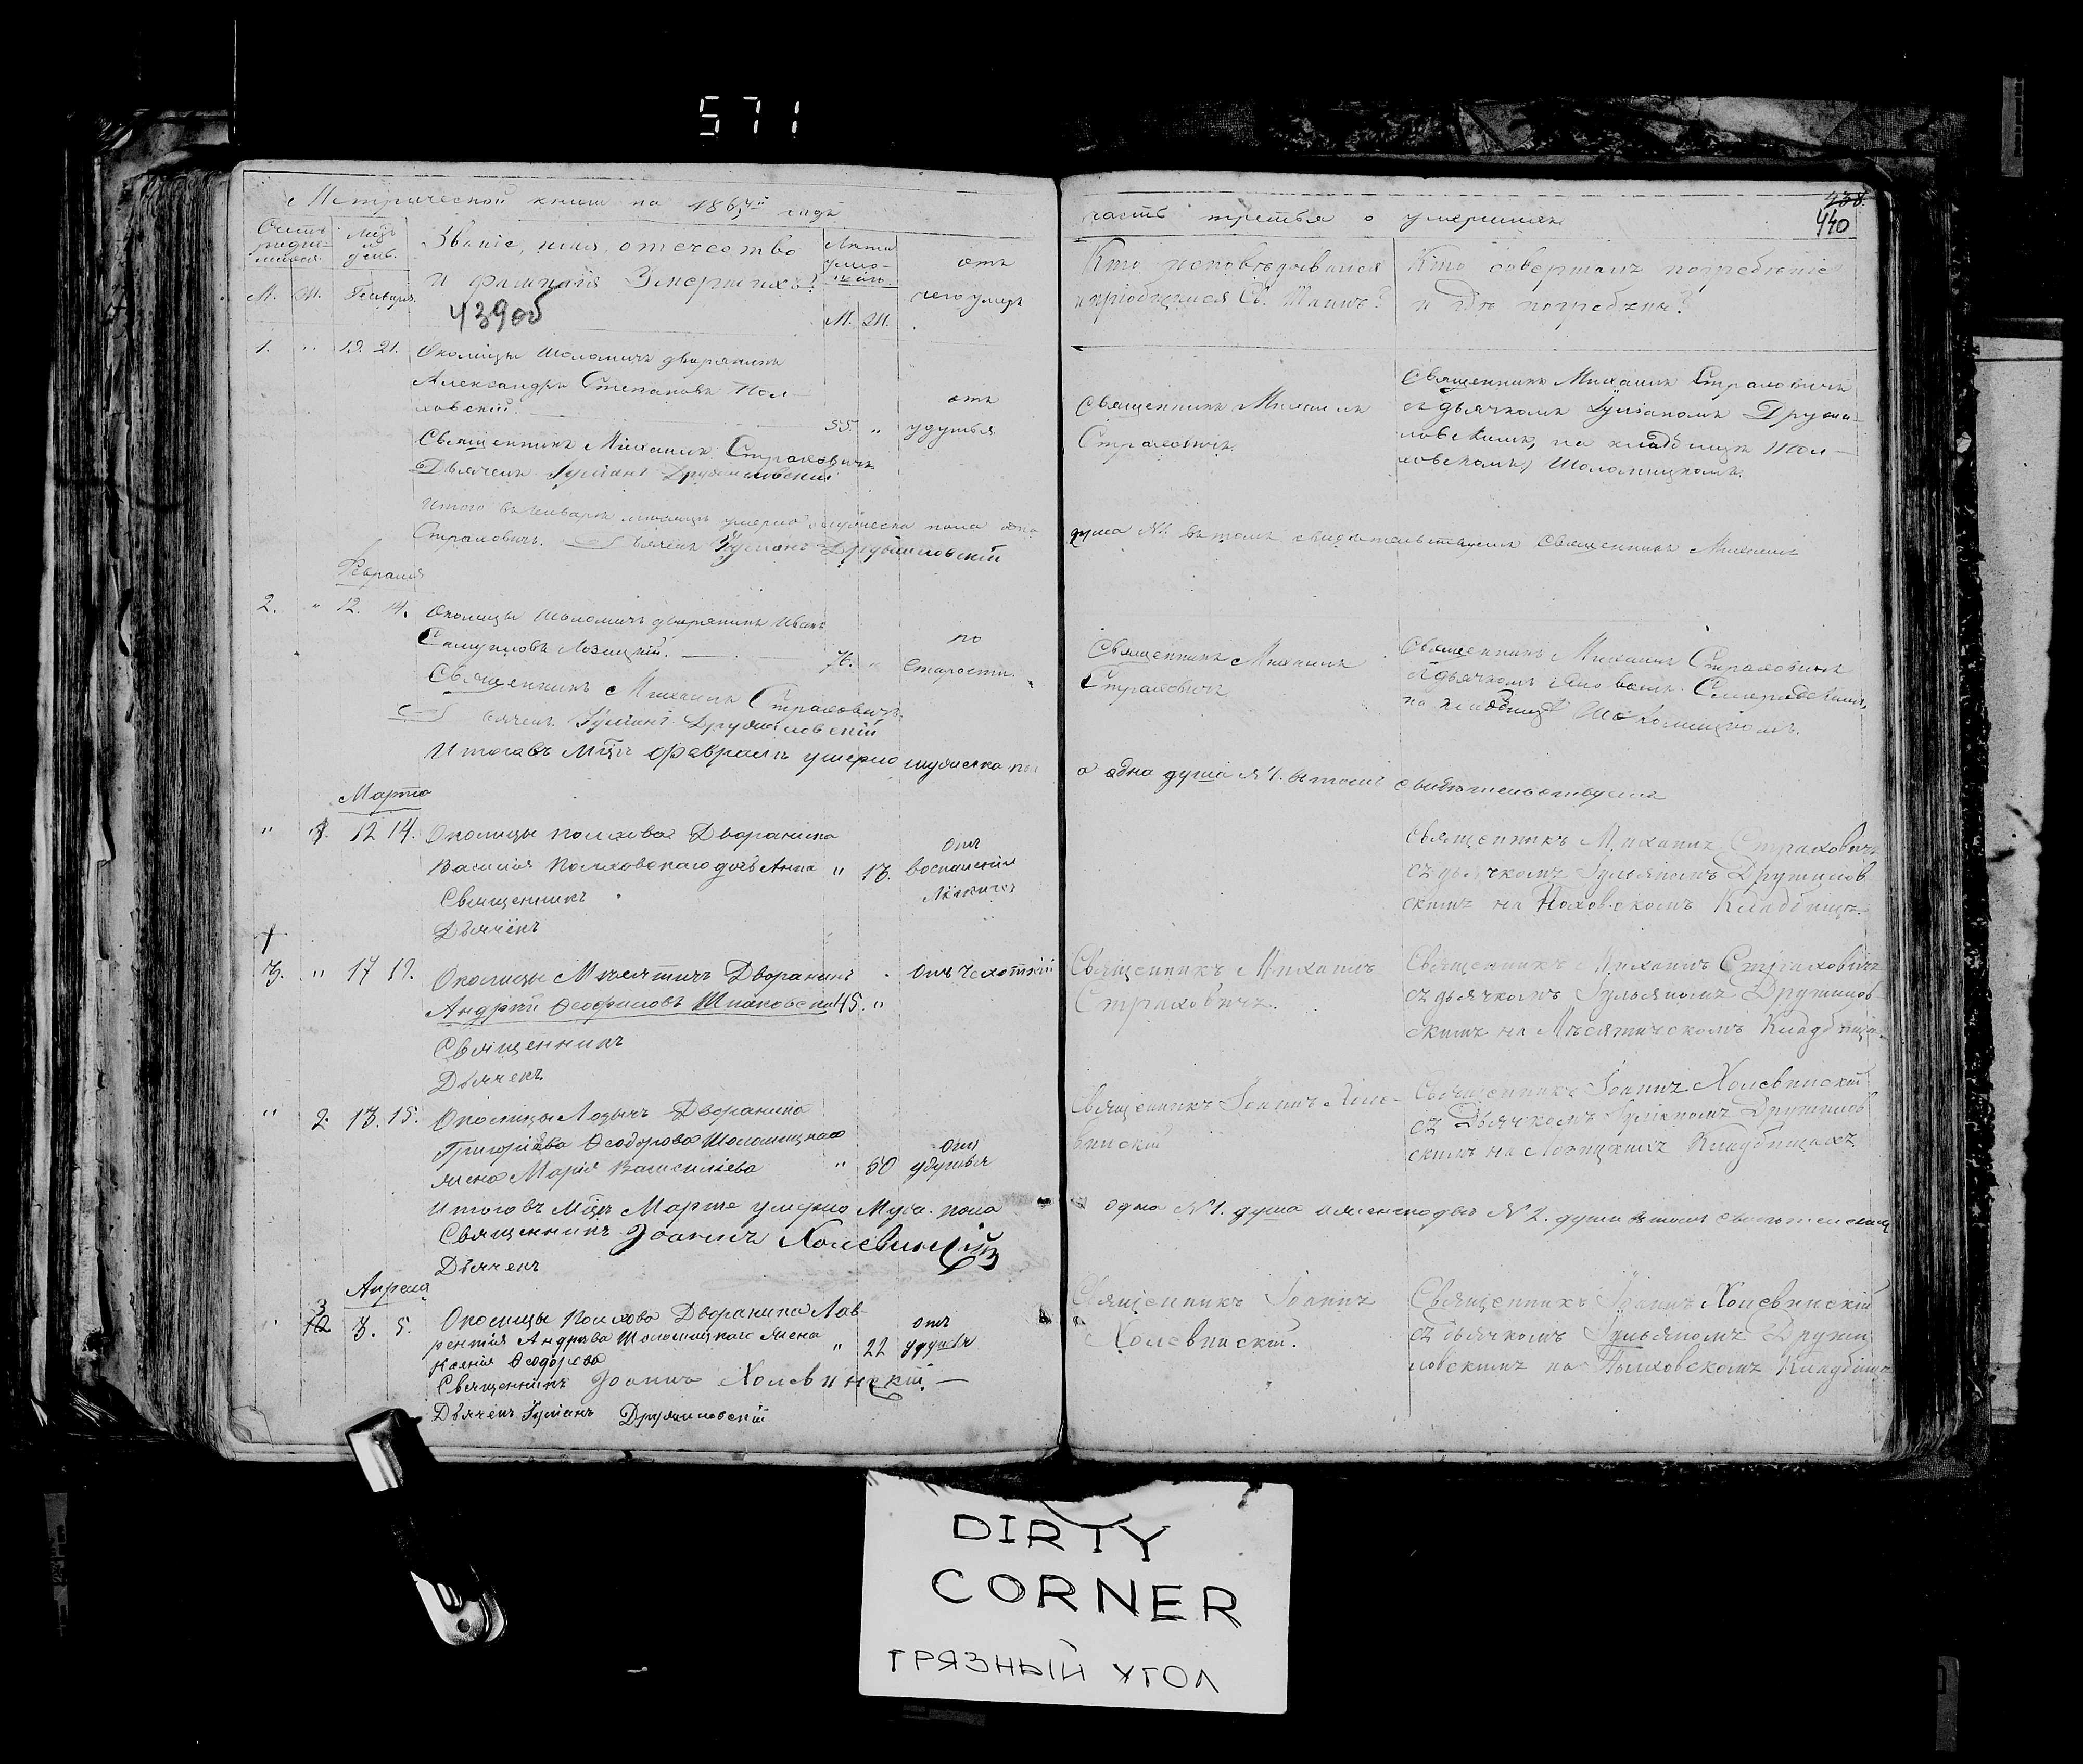 571
Метрической книги на 1864й годъ
часть третья о умершихъ
438.
440
Счетъ
М. Ж.
Мцъ и день.
Генваря.
Званіе, имя, отечество
и фамилія Умершихъ.
Лѣта
М. Ж.
отъ
чего умеръ
Кто исповѣдывался
и пріобщался Св. Таинъ?
Кто совершалъ погребеніе
и гдѣ погребены?
439об
1. " 19. 21. Околицы Шоломичъ дворянинъ
Александръ Степановъ Пол-
ховскій.
55. " отъ
удушья
Священникъ Михаилъ
Страховичъ
Священникъ Михаилъ Страховичъ
съ дьячкомъ Іуліаномъ Дружи-
ловскимъ, на кладбищѣ
Шоломицкомъ.
Священникъ Михаилъ Страховичъ
Дьячекъ Іуліанъ Дружиловскій
Итого въ Генварѣ мѣсяцѣ умерло мужеска пола одна
душа №1. въ томъ свидѣтельствуемъ Священникъ Михаилъ
Страховичъ. Дьячекъ Іуліанъ Дружиловскій
Февраля
2. " 12. 14. Околицы Шоломичъ дворянинъ Иванъ
Самуиловъ Лозицкій.
76. " по
старости.
Священникъ Михаилъ
Страховичъ
Священникъ Михаилъ Страховичъ
съ дьячкомъ
на кладбищѣ Шоломицкомъ.
Священникъ Михаилъ Страховичъ
Дьячекъ Іуліанъ Дружиловскій
Итого въ Мцѣ Февралѣ умерло мужеска пол
а одна душа №1. въ томъ свидѣтельствуемъ
Марта
" 1. 12 14. Околицы Полхова Дворянина
Василія Полховскаго дочь Анна " 13. отъ
воспаленія
Священникъ Михаилъ Страховичъ
съ дьячкомъ Іульяномъ Дружилов
скимъ на Полховскомъ Кладбищѣ.
Священникъ
Дьячекъ
3. " 17 19. Околицы Мѣлятичъ Дворянинъ
Андрей Ѳеофиловъ 45. "
отъ чахотки
Священникъ Михаилъ
Страховичъ.
Священникъ Михаилъ Страховичъ
съ дьячкомъ Іульяномъ Дружилов-
скимъ на Кладбищѣ.
Священникъ
Дьячекъ
" 2. 13. 15. Околицы Дворянина
Григорія Ѳеодорова Шоломицкаго
жена Марія " 50 отъ
удушья
Священникъ Іоаннъ Холе-
винскій
Священникъ Іоаннъ Холевинскій
съ Дьячкомъ Іуліаномъ Дружилов
скимъ на Кладбищахъ
Итого въ Мцѣ Мартѣ умерло Муж. пола
одна №1. душа и женска двѣ №2. души въ томъ
Священникъ Іоаннъ Холевинскій
Дьячекъ
Апреля
" 3
12 3. 5. Околицы Полхова Дворянина Лав-
рентія Андрѣева Шоломицкаго жена
Ксенія Ѳеодорова " 22 отъ
удушья
Священникъ Іоаннъ
Холевинскій.
Священникъ Іоаннъ Холевинскій
съ дьячкомъ Іульяномъ Дружи
ловскимъ на Полховскомъ Кладбищѣ
Священникъ Іоаннъ Холевинскій
Дьячекъ Іуліанъ Дружиловскій
DIRTY
CORNER
ГРЯЗНЫЙ УГОЛ